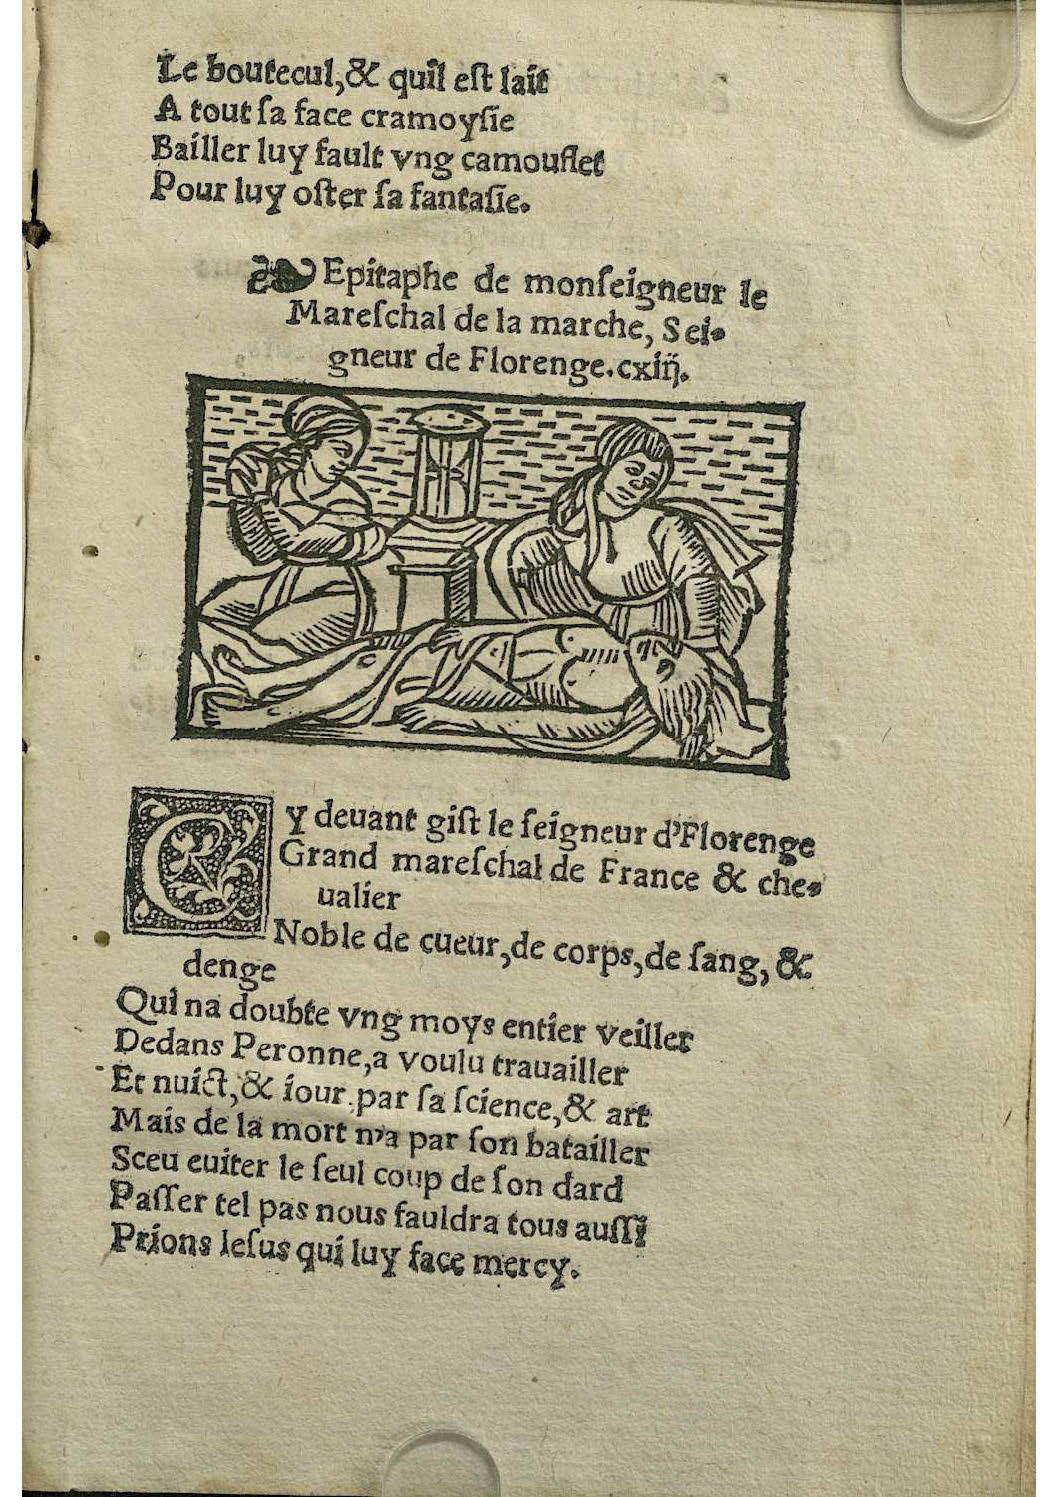 Le boutecul,& quil est lait
A tout sa face cramoysie
Bailler luy fault vng camouflet
Pour luy oster sa fantasie.
❧ Epitaphe de monseigneur le
Mareschal de la marche, Sei-
gneur de Florenge.cxiij.
Cy deuant gist le seigneur d'Florenge
Grand mareschal de France & che-
ualier
Noble de cueur,de corps,de sang, &
denge
Qui na doubte vng moys entier veiller
Dedans Peronne,a voulu trauailler
Et nuict,& iour par sa science,& art
Mais de la mort n'a par son batailler
Sceu euiter le seul coup de son dard
Passer tel pas nous fauldra tous aussi
Prions Iesus qui luy face mercy.